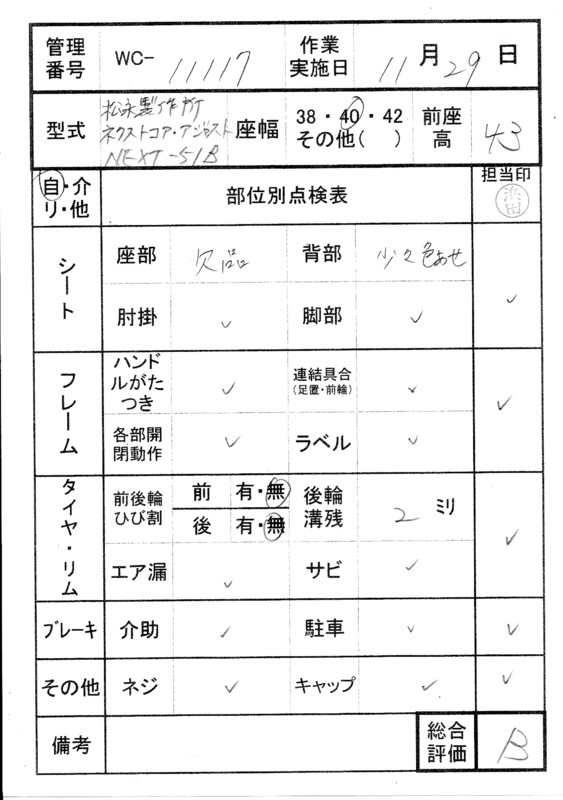 管理番号 WC- 11117 作業実施日 11月29日
型式 松永製作所 ネクストコア・アジャスト NEXT-51B 座幅 38・40・42 その他( ) 前座高 43
自・介 リ・他 部位別点検表 担当印 浜田
シート 座部 欠品 背部 少々色あせ ✓
肘掛 ✓ 脚部 ✓
フレーム ハンドルがたつき ✓ 連結具合(足置・前輪) ✓ ✓
各部開閉動作 ✓ ラベル ✓
タイヤ・リム 前後輪ひび割 前 有・無 後 有・無 後輪溝残 2 ミリ ✓
エア漏 ✓ サビ ✓
ブレーキ 介助 ✓ 駐車 ✓ ✓
その他 ネジ ✓ キャップ ✓ ✓
備考 総合評価 B